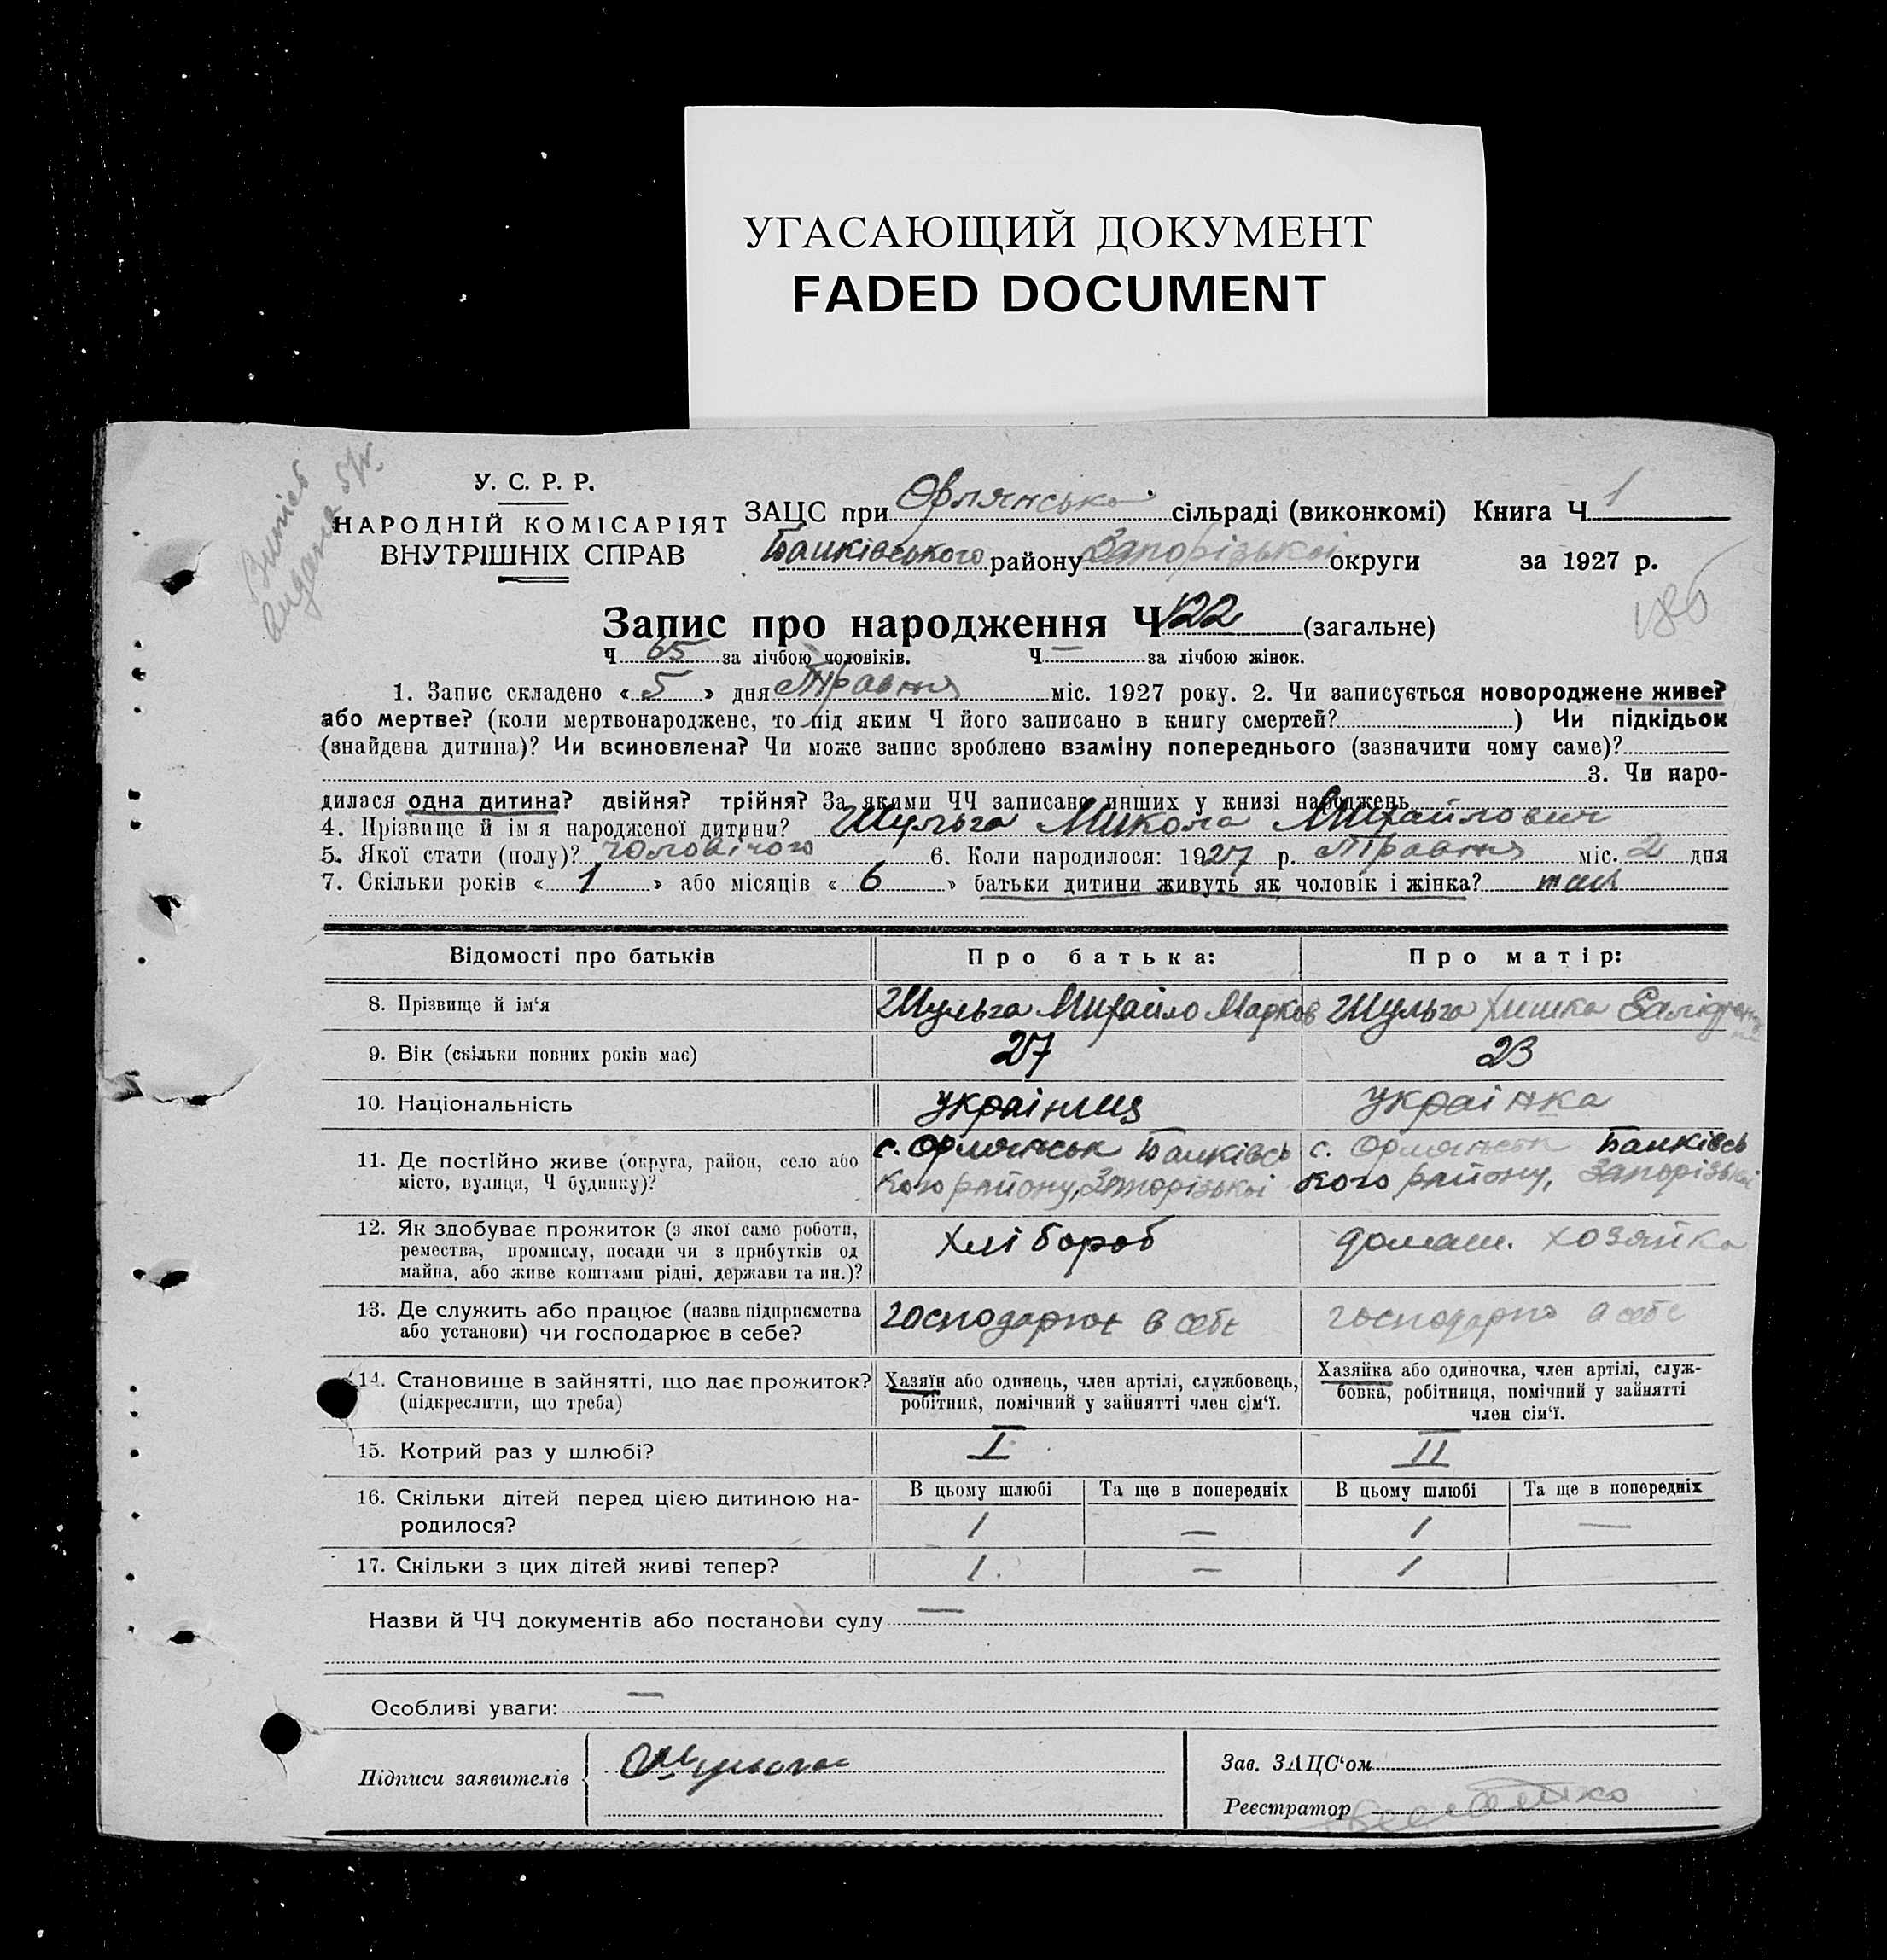 УГАСАЮЩИЙ ДОКУМЕНТ
FADED DOCUMENT
У. С. Р. Р.
НАРОДНІЙ КОМІСАРІЯТ
ВНУТРІШНІХ СПРАВ
ЗАЦС при Орлянській сільраді (виконкомі) Книга Ч 1
району Запорізької округи за 1927 р.
186
Запис про народження Ч 122 (загальне)
Ч 65 за лічбою чоловіків. Ч — за лічбою жінок.
1. Запис складено « 5 » дня Травня міс. 1927 року. 2. Чи записується новороджене живе?
або мертве? (коли мертвонароджене, то під яким Ч його записано в книгу смертей?) Чи підкідьок
(знайдена дитина)? Чи всиновлена? Чи може запис зроблено взаміну попереднього (зазначити чому саме)?
3. Чи наро-
дилася одна дитина? двійня? трійня? За якими ЧЧ записано инших у книзі народжень
4. Прізвище й ім'я народженої дитини? Шульга Микола Михайлович
5. Якої стати (полу)? чоловічого 6. Коли народилося: 1927 р. Травня міс. 2 дня
7. Скільки років « 1 » або місяців « 6 » батьки дитини живуть як чоловік і жінка? так
Відомості про батьків Про батька: Про матір:
8. Прізвище й ім'я Шульга Михайло Марков Шульга
9. Вік (скільки повних років має) 27 23
10. Національність українец українка
11. Де постійно живе (округа, район, село або місто, вулиця, Ч будинку)? с. Орлянськ
кого району, Запорізької
с. Орлянськ
кого району, Запорізької
12. Як здобуває прожиток (з якої саме роботи,
ремества, промислу, посади чи з прибутків од
майна, або живе коштами рідні, держави та ин.)?
хлібороб домаш. хозяйка
13. Де служить або працює (назва підприємства
або установи) чи господарює в себе?
господарює в себе господарює в себе
14. Становище в зайнятті, що дає прожиток?
(підкреслити, що треба)
Хазяїн або одинець, член артілі, службовець,
робітник, помічний у зайнятті член сім'ї.
Хазяйка або одиночка, член артілі, служ-
бовка, робітниця, помічний у зайнятті
член сім'ї.
15. Котрий раз у шлюбі? I II
В цьому шлюбі Та ще в попередніх В цьому шлюбі Та ще в попередніх
16. Скільки дітей перед цією дитиною на-
родилося? 1 — 1 —
17. Скільки з цих дітей живі тепер? 1. — 1
Назви й ЧЧ документів або постанови суду —
Особливі уваги: —
Підписи заявителів Шульга
Зав. ЗАЦС'ом
Реєстратор